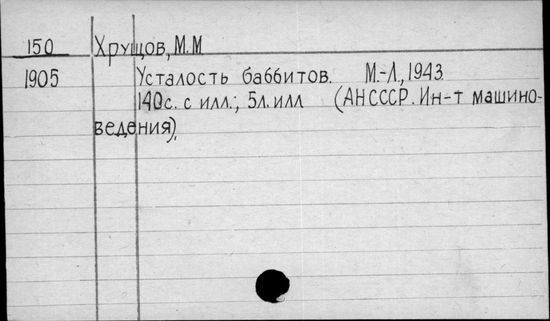 150 Хрущов, М.М
1905 Усталость баббитов. М.-Л., 1943
140с. с илл.; 5л. илл (АН СССР. Ин-т машино-
ведения).